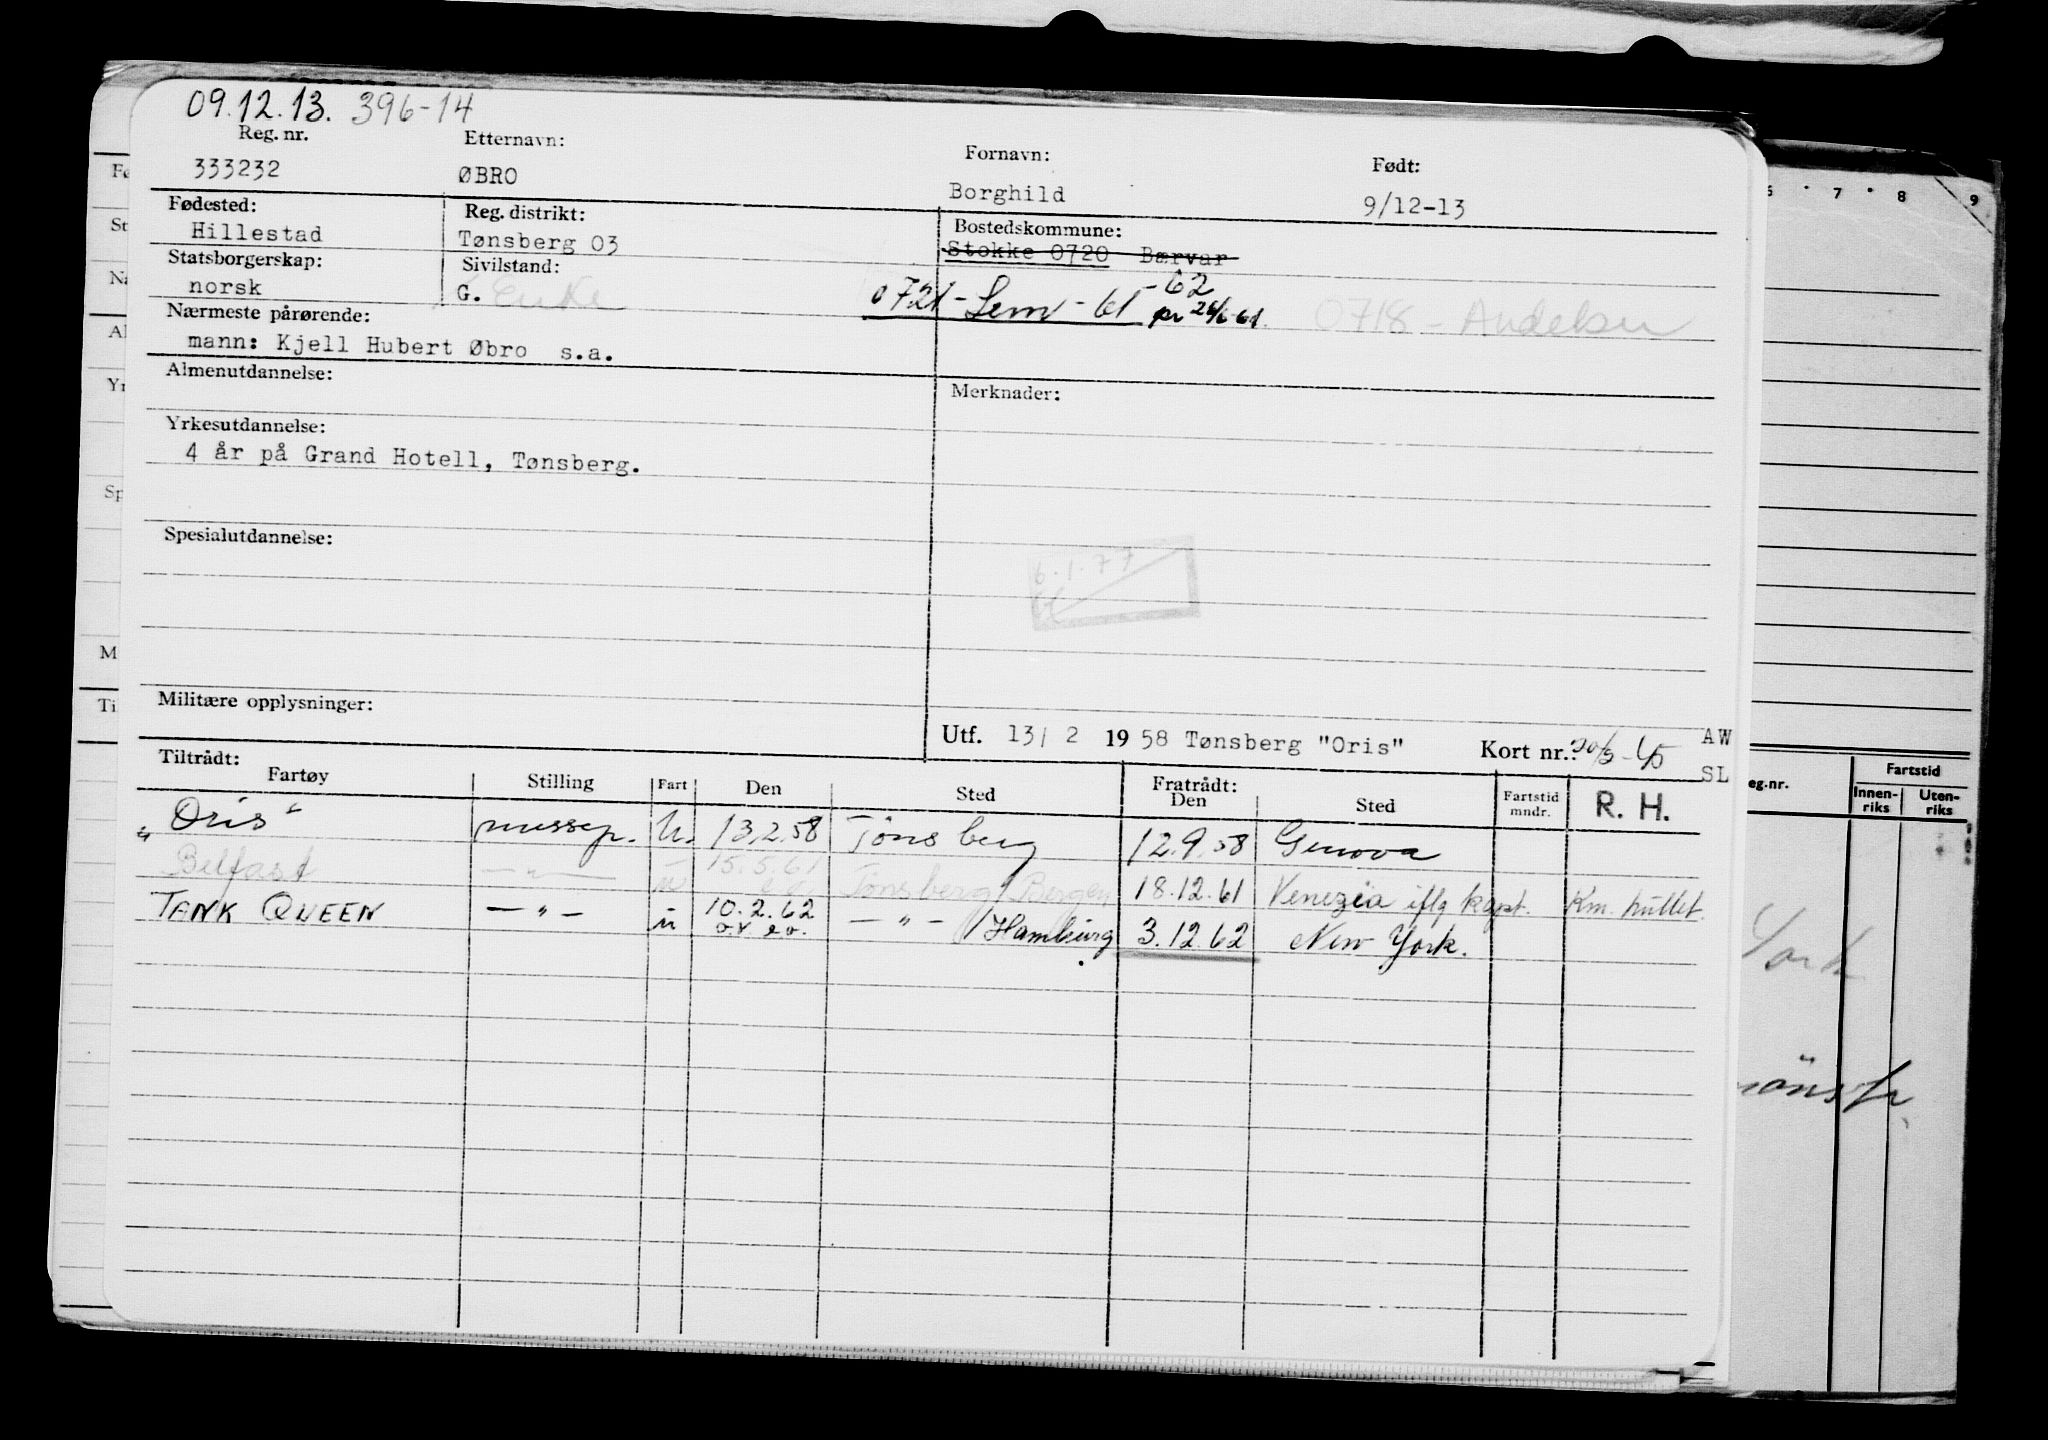 09.12.13. 396-14
Reg. nr. Etternavn: Fornavn: Født:
333232 ØBRO Borghild 9/12-13
Fødested: Reg. distrikt: Bostedskommune:
Hillestad Tønsberg 03 Stokke 0720 Bærvar
Statsborgerskap: Sivilstand:
norsk G. Enke 0721 - Sem - 61 - 62 pr 0718 - Andebu
Nærmeste pårørende:
mann: Kjell Hubert Øbro s.a.
Almenutdannelse: Merknader:
Yrkesutdannelse:
4 år på Grand Hotell, Tønsberg.
Spesialutdannelse:
6.1.77
Militære opplysninger:
Utf. 13/ 2 1958 Tønsberg "Oris" Kort nr.: AW
SL
Tiltrådt: Fratrådt:
Fartøy Stilling Fart Den Sted Den Sted Fartstid mndr. R. H.
"Oris" messep. U. 13.2.58 Tönsberg 12.9.58 Genova
Belfast — " — u 15.5.61 Tönsberg/Bergen 18.12.61 Venezia iflg kapt. Km. hullet.
TANK QUEEN — " — u 10.2.62 — " — /Hamburg 3.12.62 New York.
6 7 8 9
eg.nr. Fartstid
Innen-riks Uten-riks
York